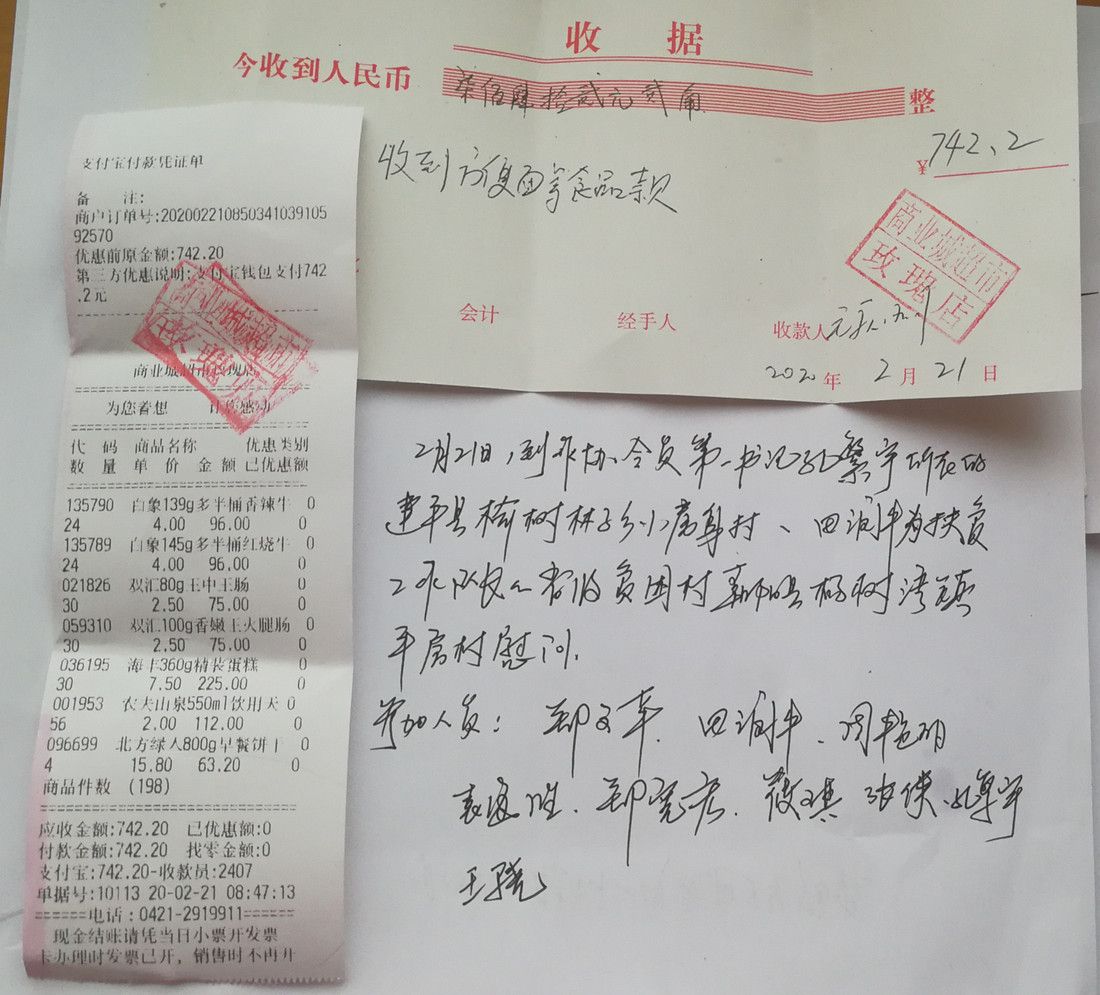 收 据
今收到人民币 柒佰肆拾贰元贰角 整
¥742.2
收到方便面等食品款
商业城超市
玫瑰店
会计 经手人 收款人
2020年 2月 21日
支付宝付款凭证单
备 注:
商户订单号:20200221085034103910592570
优惠前原金额:742.20
第三方优惠说明:支付宝钱包支付742
.2元
商业城超市玫瑰店
为您着想 让您感动
代 码 商品名称 优惠类别
数 量 单 价 金 额 已优惠额
135790 白象139g多半桶香辣牛 0
24 4.00 96.00 0
135789 白象145g多半桶红烧牛 0
24 4.00 96.00 0
021826 双汇80g王中王肠 0
30 2.50 75.00 0
059310 双汇100g香嫩王火腿肠 0
30 2.50 75.00 0
036195 海丰360g精装蛋糕 0
30 7.50 225.00 0
001953 农夫山泉550ml饮用天 0
56 2.00 112.00 0
096699 北方绿人800g早餐饼干 0
4 15.80 63.20 0
商品件数 (198)
应收金额:742.20 已优惠额:0
付款金额:742.20 找零金额:0
支付宝:742.20-收款员:2407
单据号:10113 20-02-21 08:47:13
======电话:0421-2919911======
现金结账请凭当日小票开发票
卡办理时发票已开,销售时不再开
2月21日,到作协会员第一书记 所在的
建平县榆树林子乡 村、田润丰为扶贫
工作队长 贫困村 县杨树湾镇
平房村慰问.
参加人员: 郑文革、田润丰、周艳丽
袁海胜、郑 、 琪
王